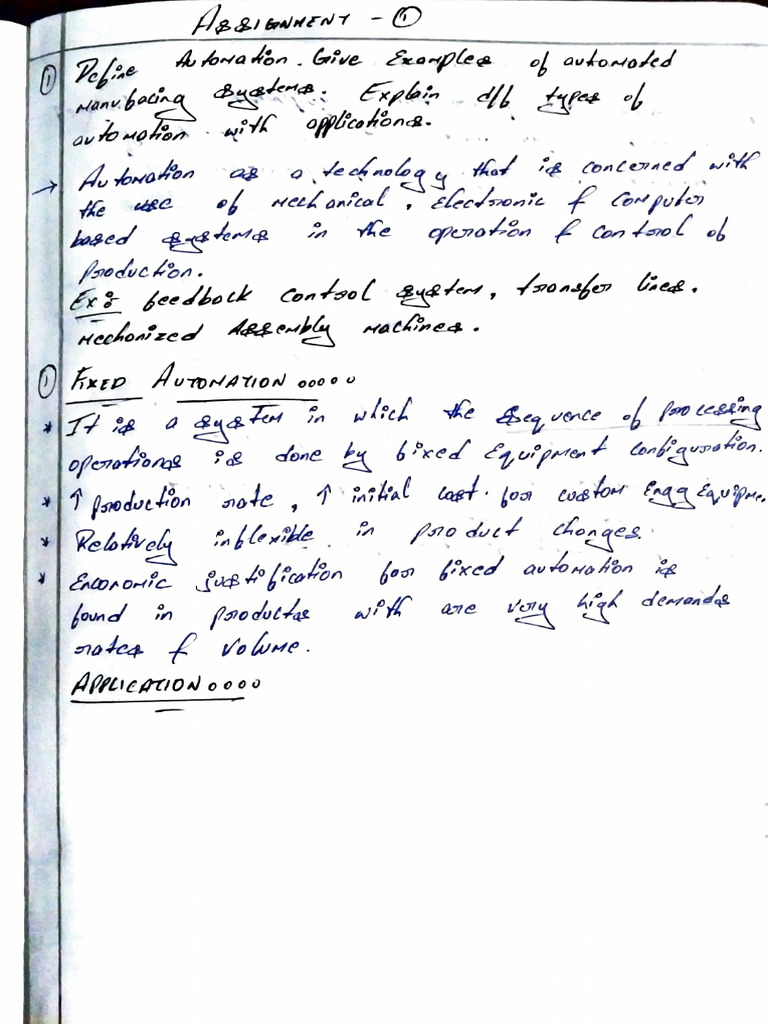 ASSIGNMENT - ①
① Define Automation. Give Examples of automated
manufacing systems. Explain d/f types of
automation with applications.
→ Automation as a technology that is concerned with
the use of Mechanical, Electronic & Computer
based systems in the operation & control of
Production.
Ex: feedback control system, transfer lines.
Mechonized Assembly machines.
① FIXED AUTOMATION
* It is a system in which the sequence of processing
operations is done by fixed Equipment configuration.
* ↑ production rate, ↑ initial cost for custom Engg Equipme.
* Relatively inflexible in product changes.
* Enconomic justification for fixed automation is
found in products with are very high demands
rates & Volume.
APPLICATION